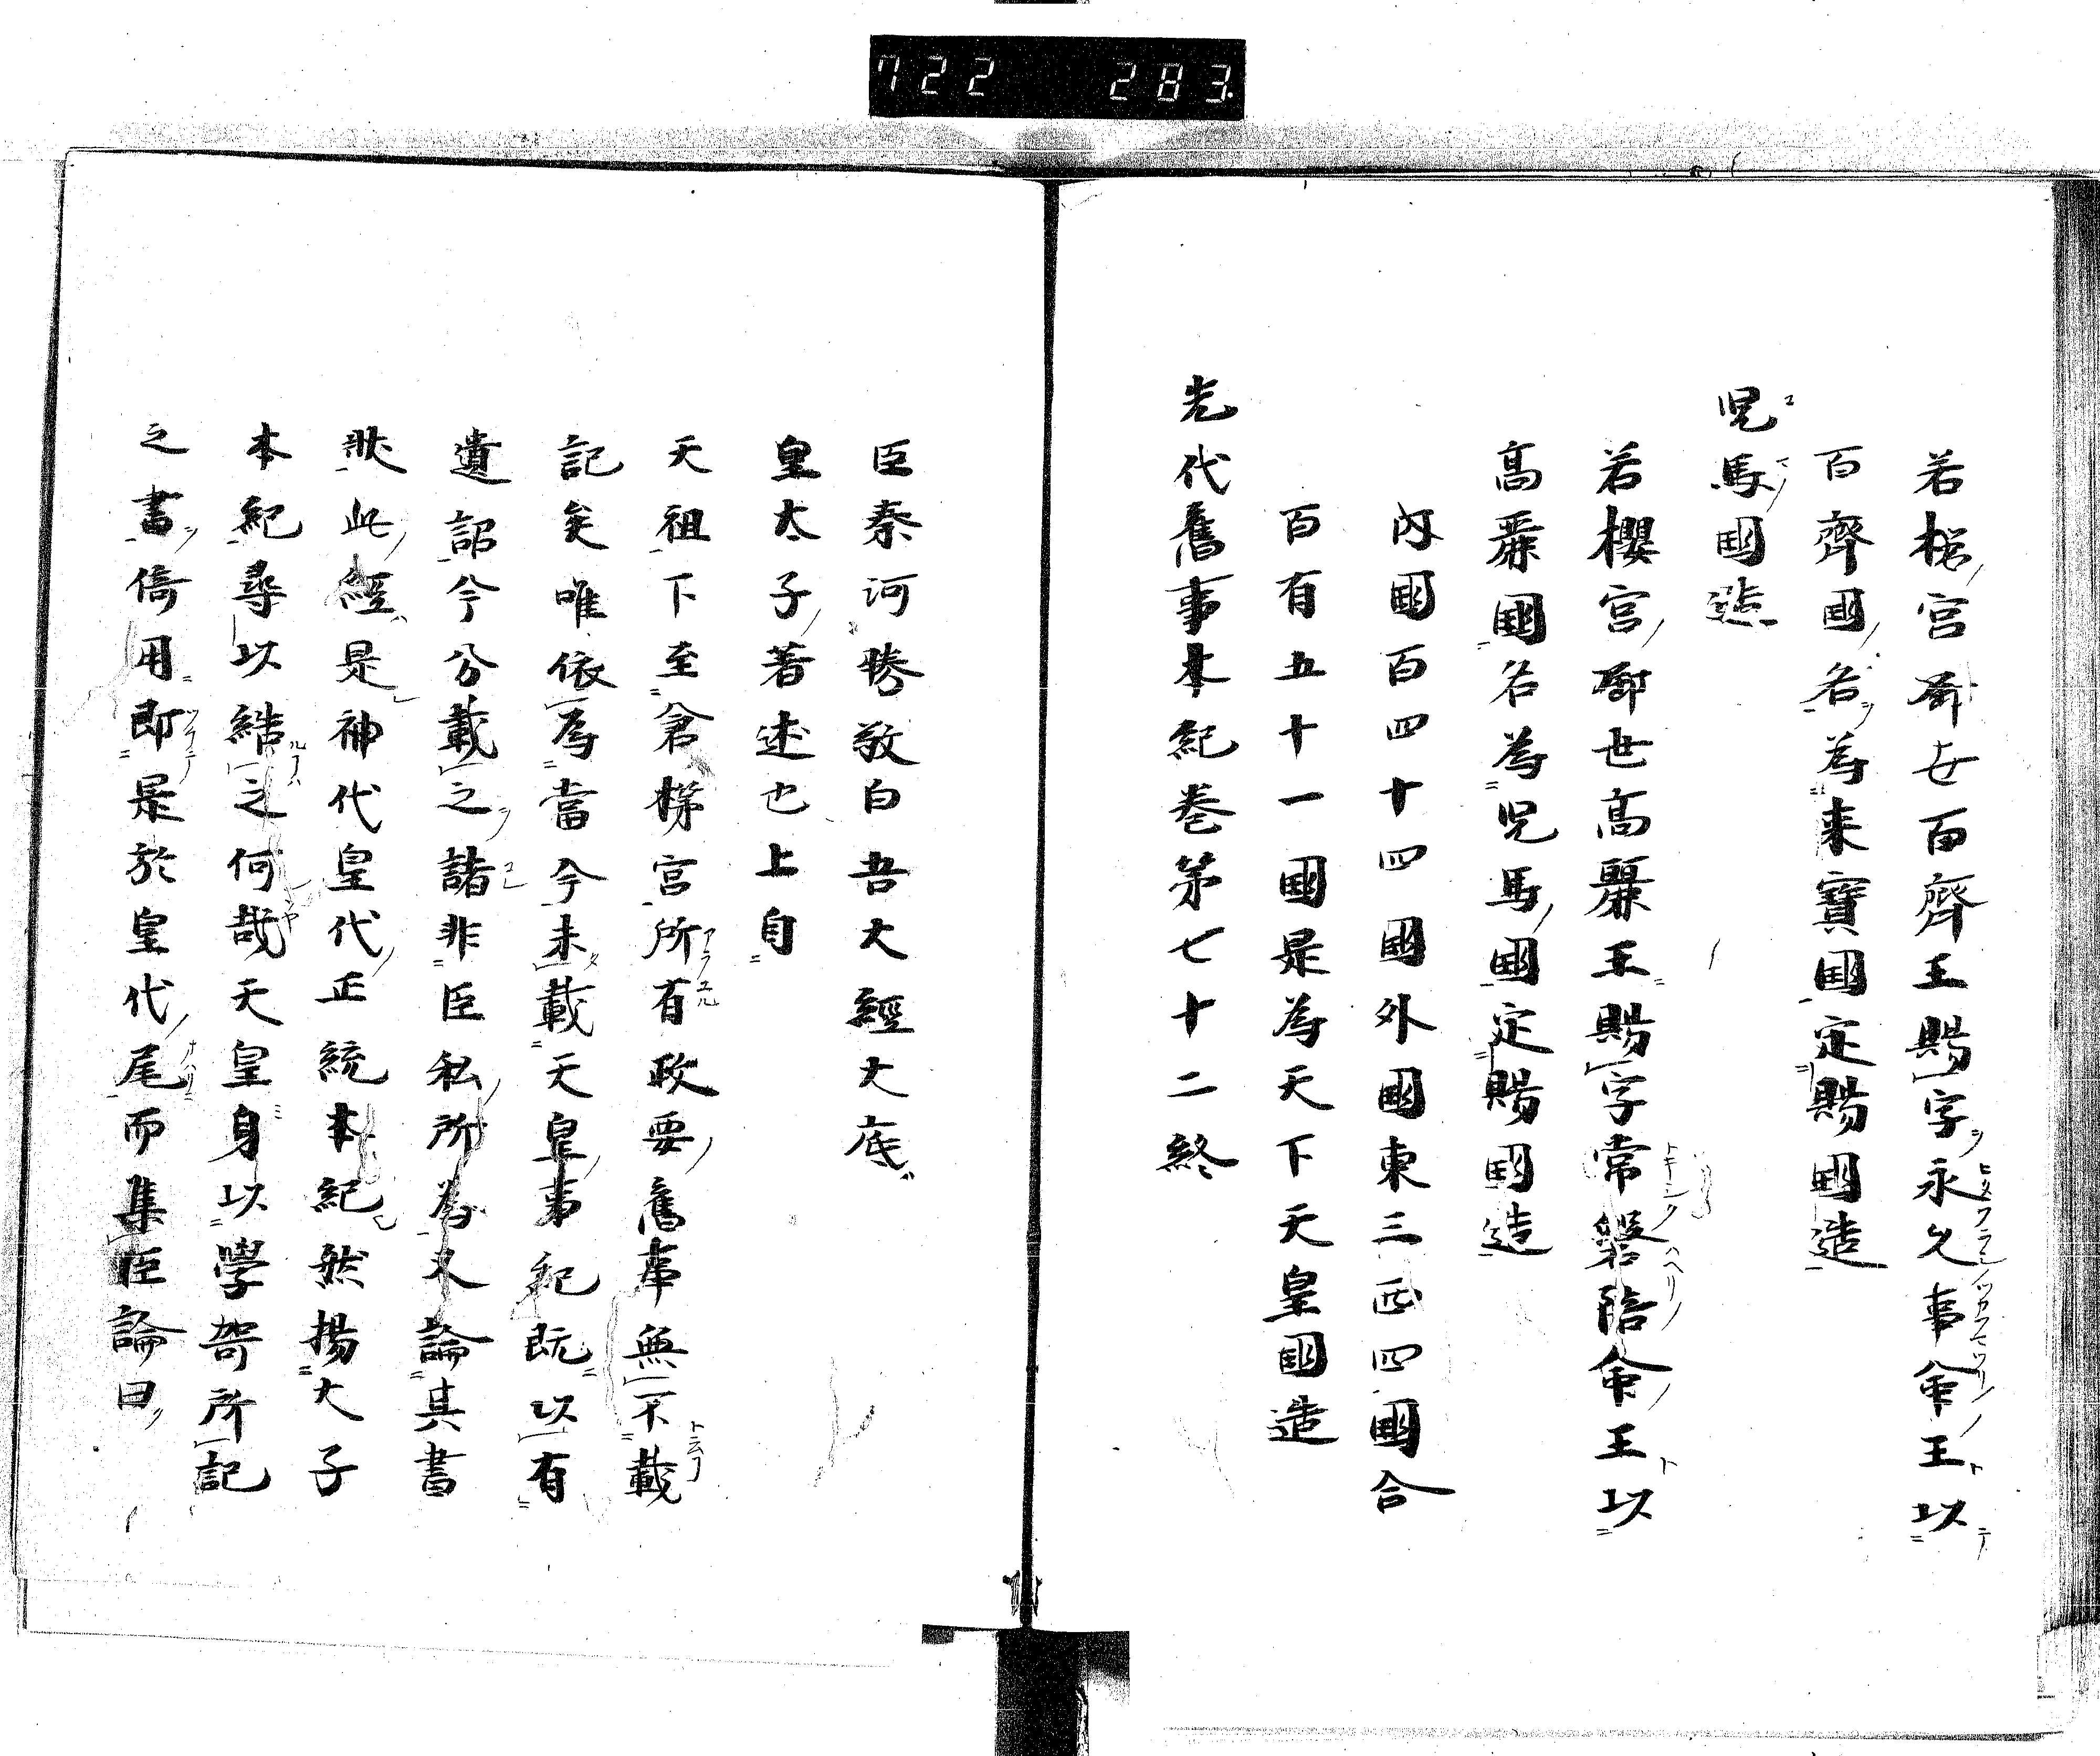 722 283
若櫻宮御世百齊王賜字永久事命王以
百齊國名為来寶國定賜國造
児馬國造
若櫻宮御世高麗王賜字常磐陪命王以
高麗國名為児馬國定賜國造
内國百四十四國外國東三西四國合
百有五十一國是為天下天皇國造
先代舊事本紀巻第七十二終
臣秦河勝敬白吾大經大底
皇太子著述也上自
天祖下至倉梯宮所有政要舊事無不載
記矣唯依為當今未載天皇事紀既以有
遺詔今分載之諸非臣私所為又論其書
此經是神代皇代正統本紀然揚大子
本紀尋以結之何哉天皇身以學哿所記
之書倚用即是於皇代尾而集臣論曰